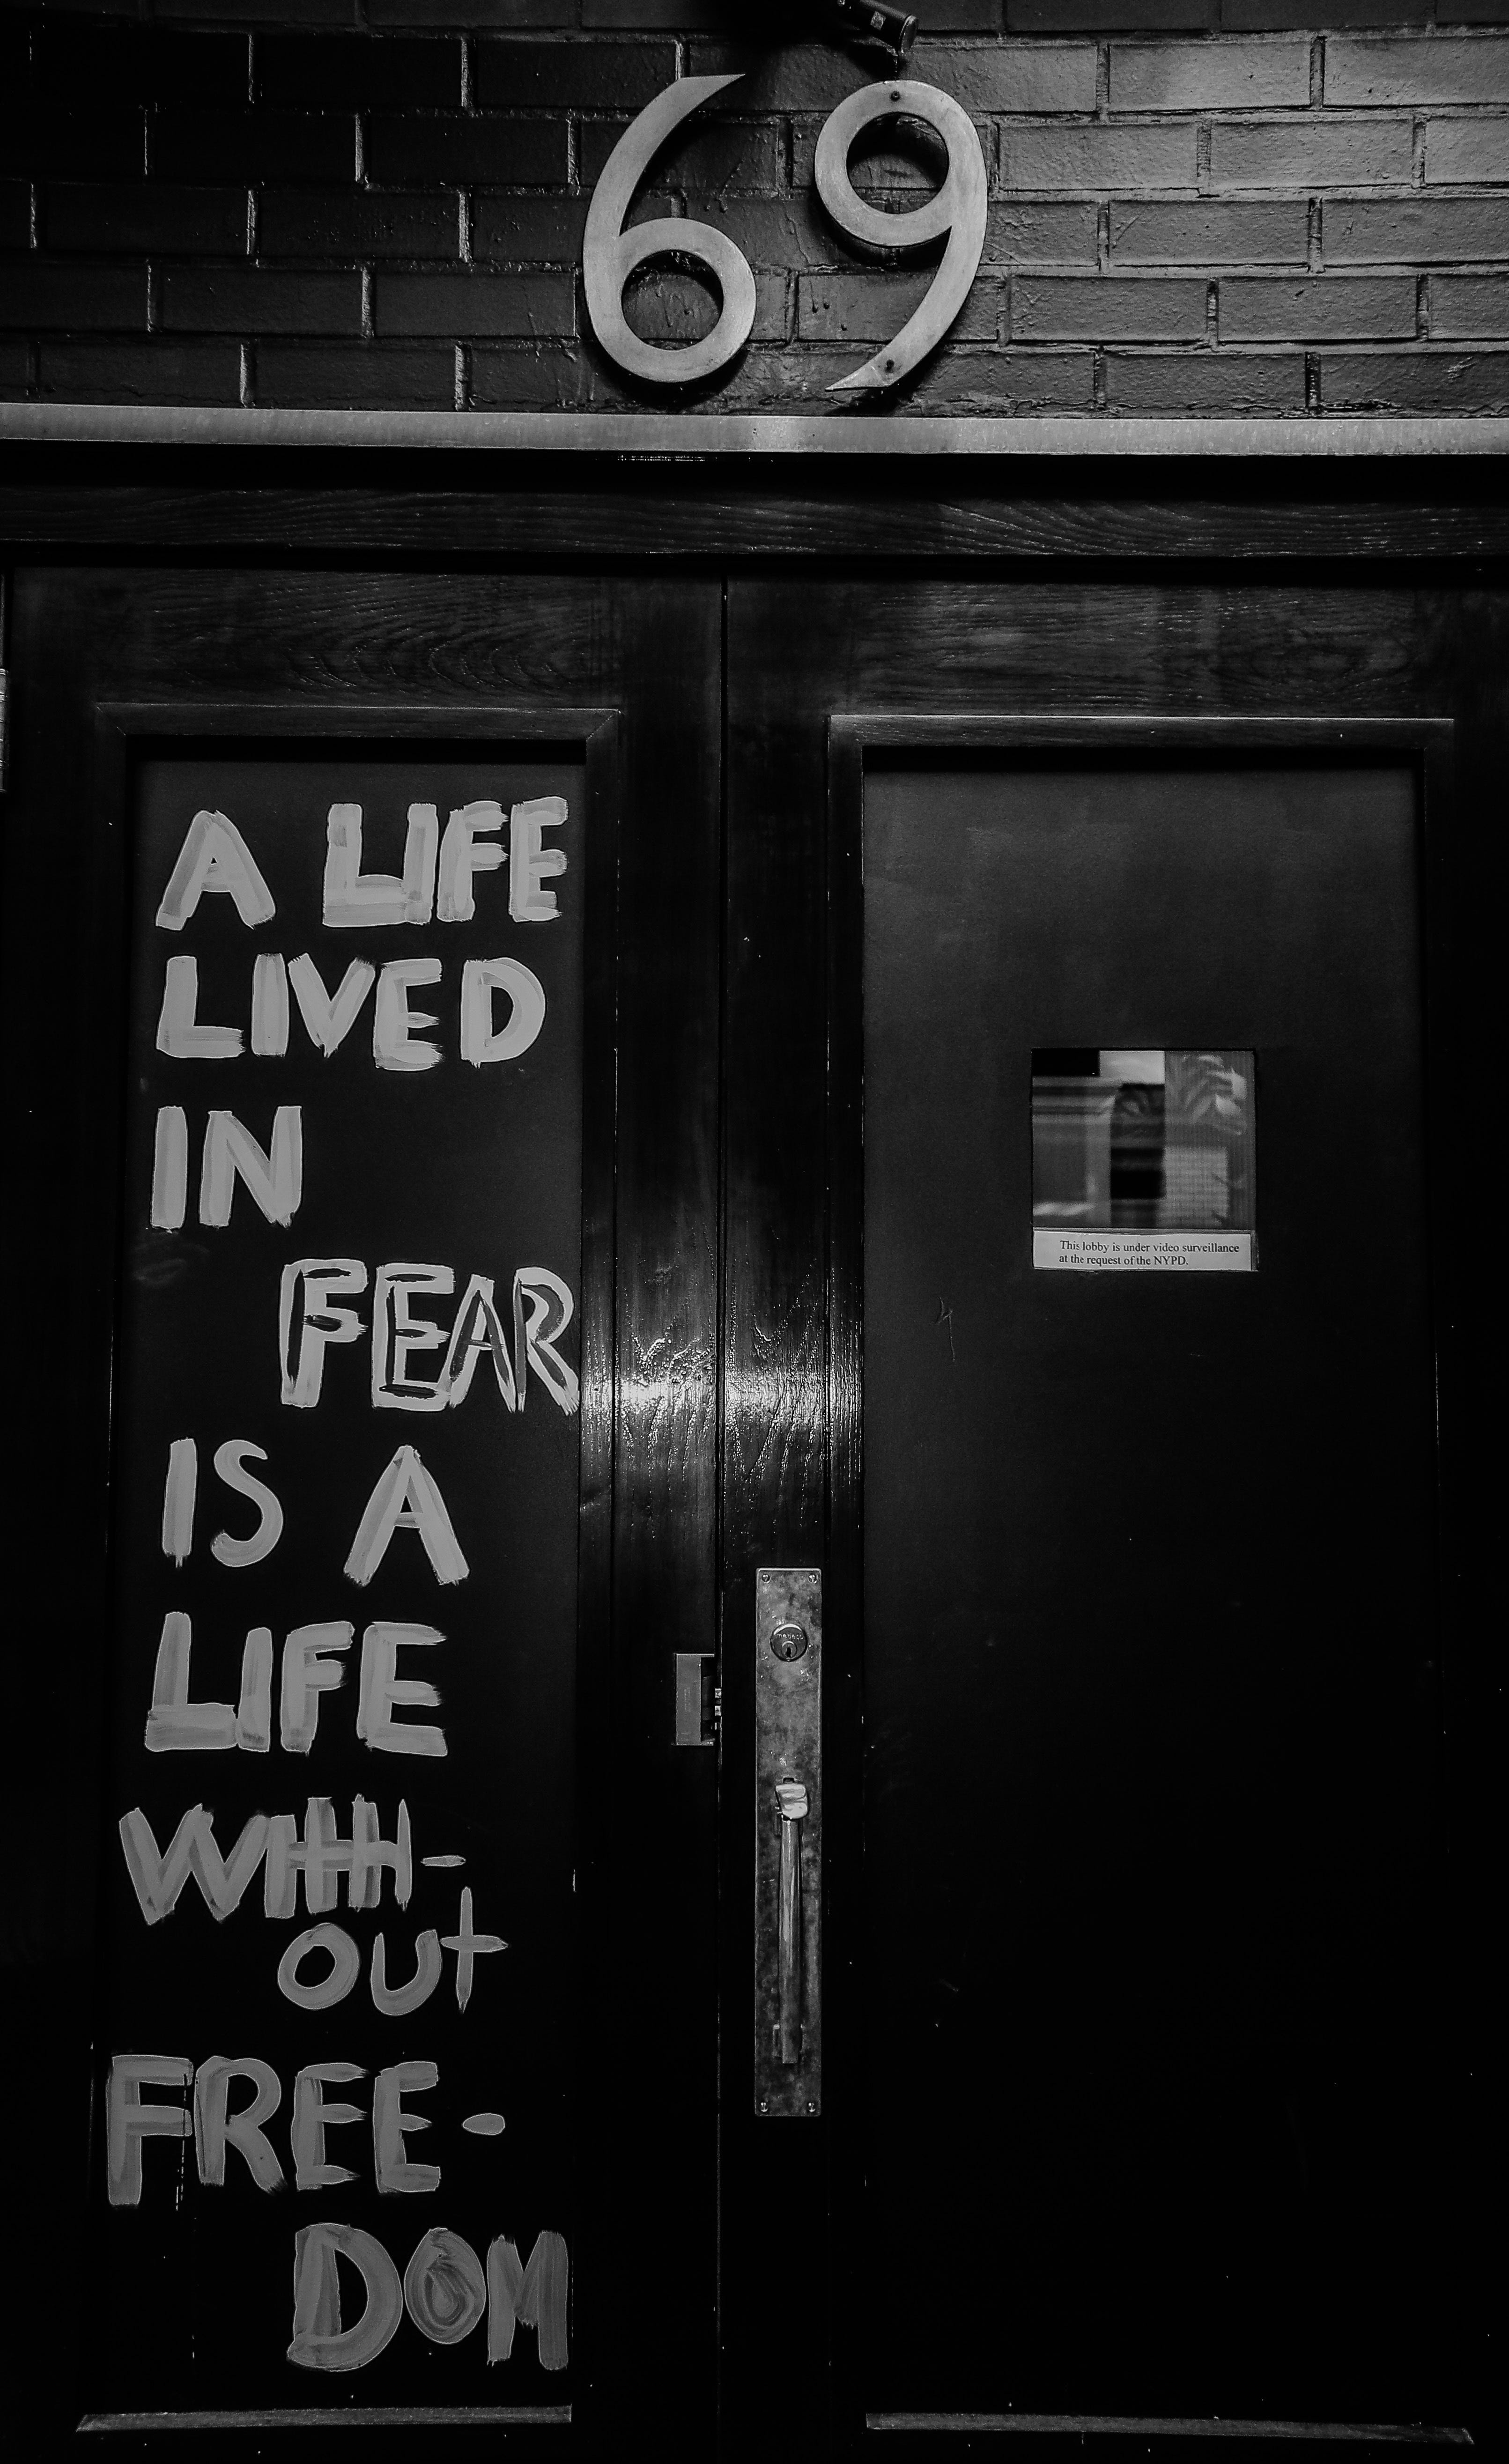 69
A LIFE
LIVED
IN
FEAR
IS A
LIFE
WITH-
OUT
FREE-
DOM
This lobby is under video surveillance
at the request of the NYPD.